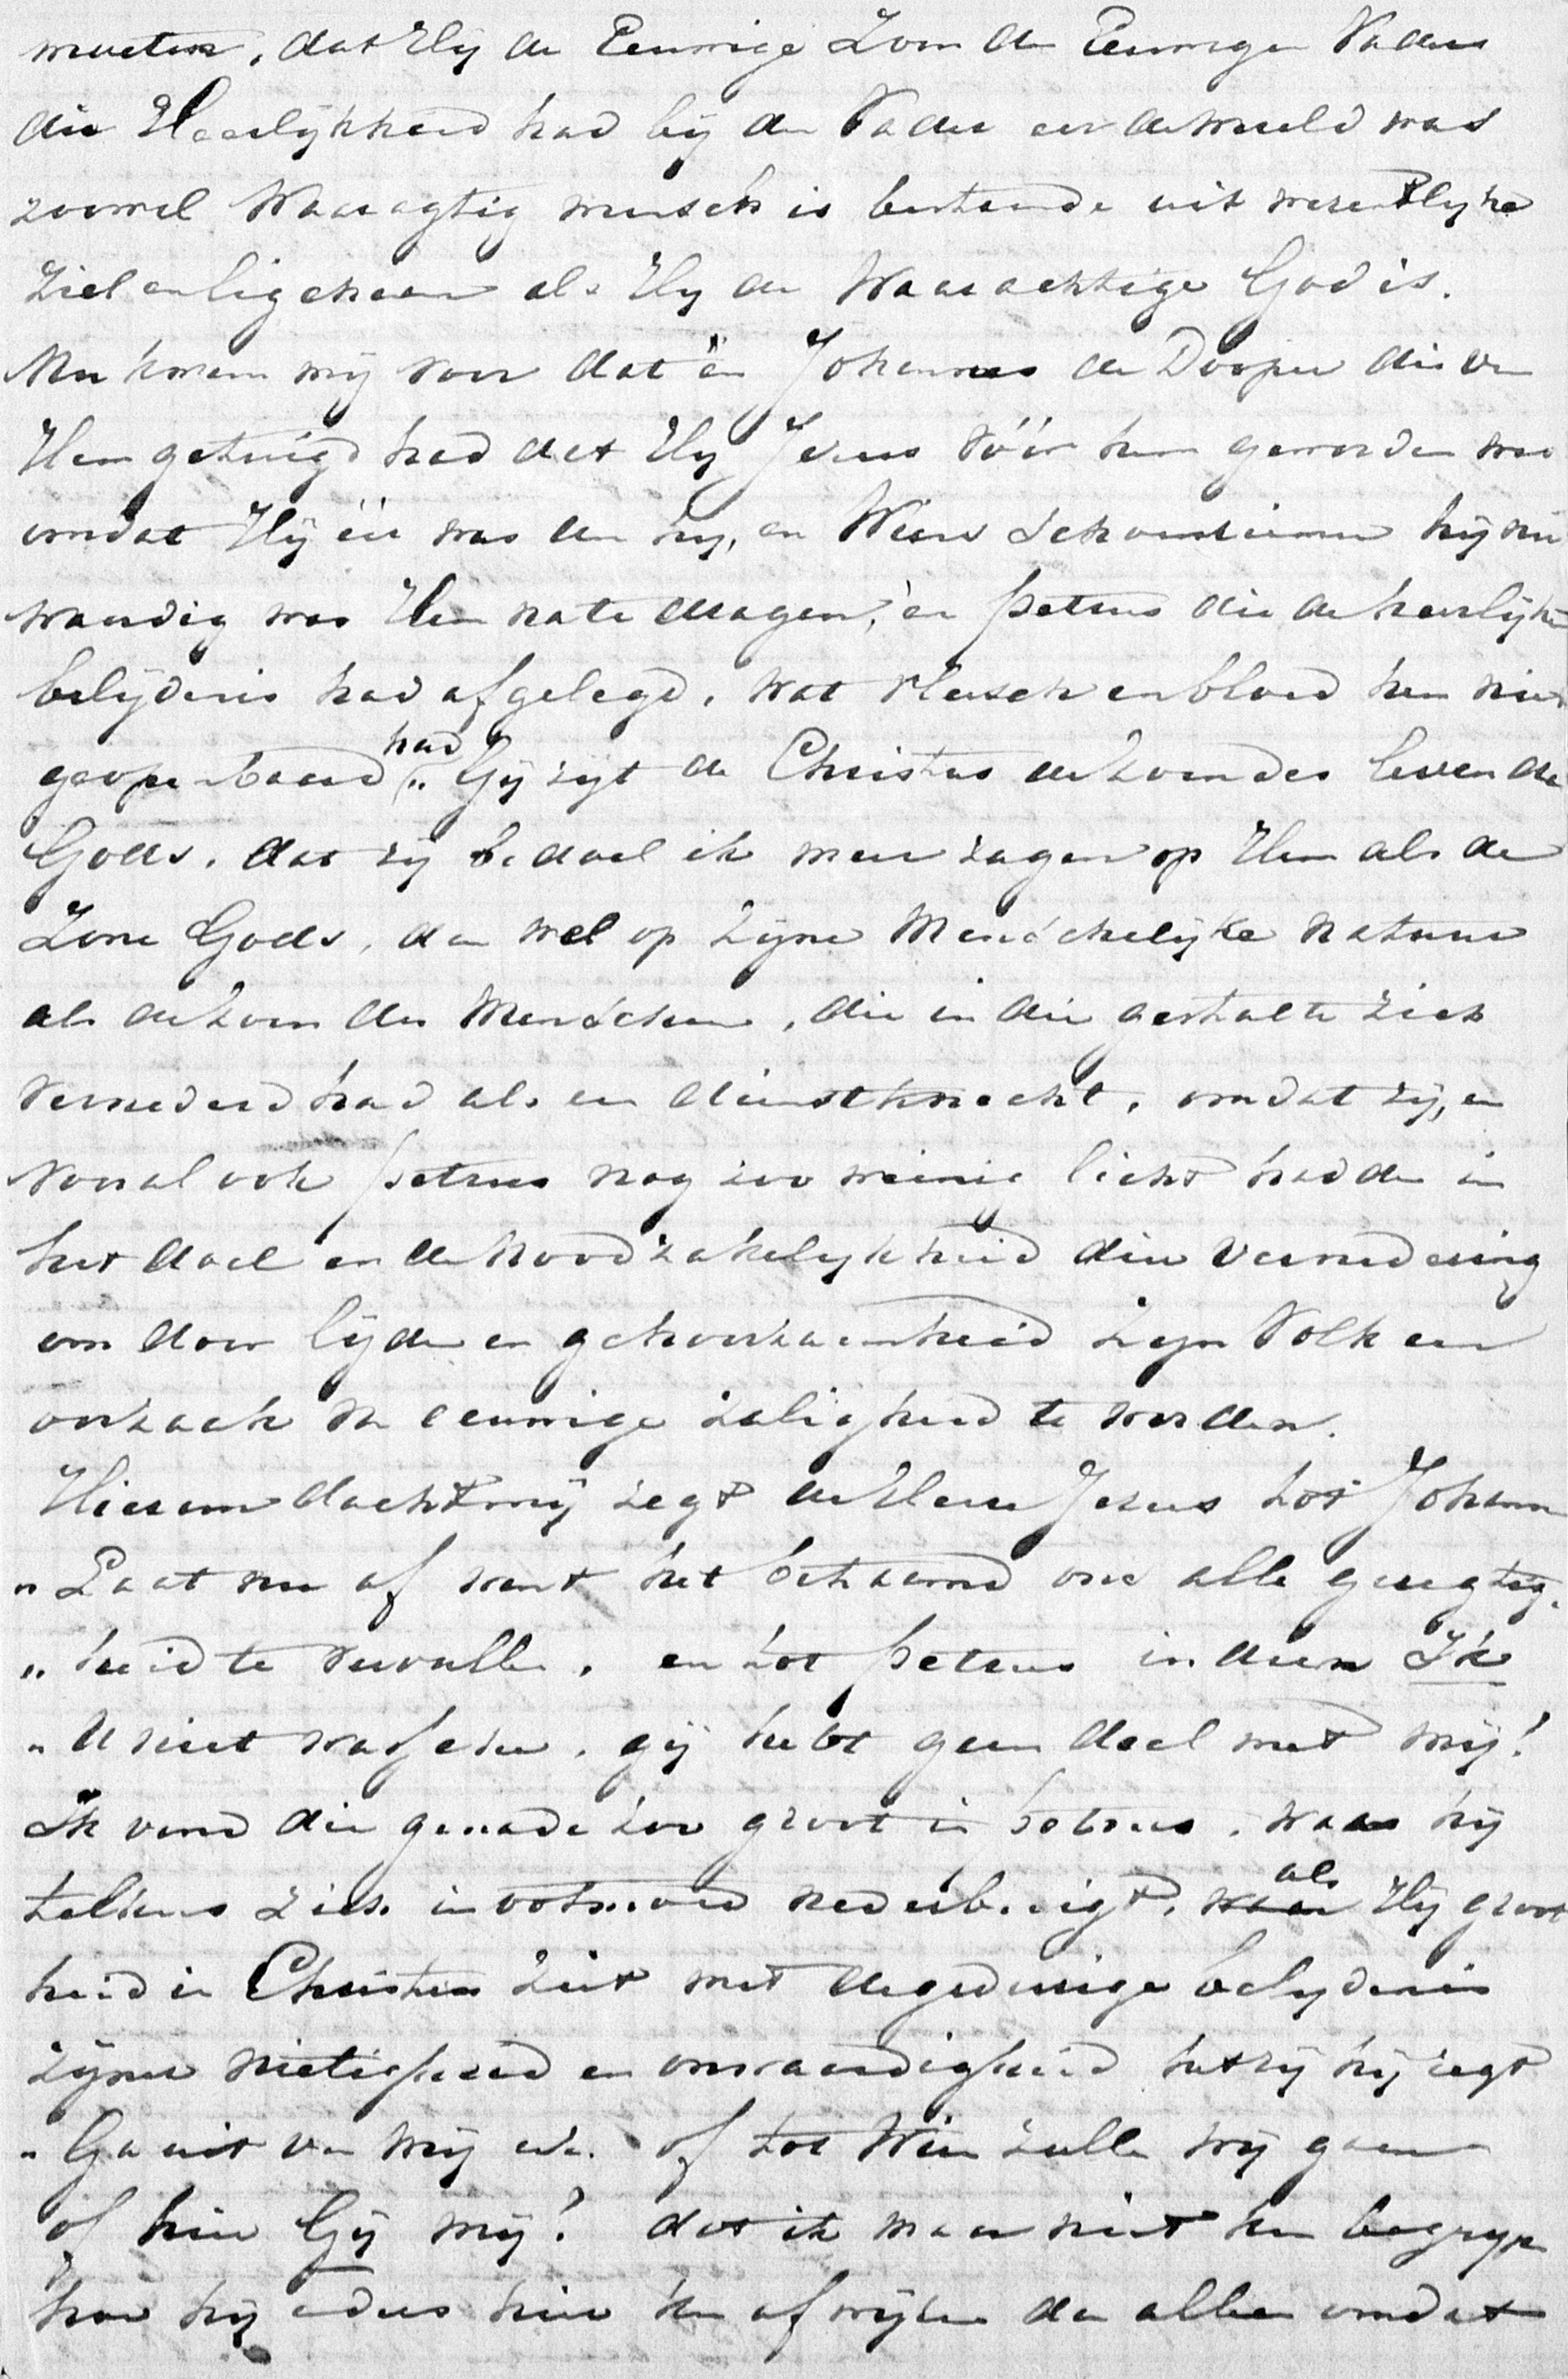 moeten, dat Hij de Eeuwige Zoon des Eeuwigen Vaders
die Heerlijkheid had bij den Vader eer de wereld was
zoowel Waaragtig mensch is bestaande uit wezentlijke
ziel en ligchaam als Hij de Waarachtige God is.
Nu kwam mij voor dat èn Johannes de Dooper die van
Hem getuigd had dat Hij Jezus vóór hem geworden was
omdat Hij éér was dan hij, en Wiens Schoenriemen hij niet
waardig was Hem na te dragen, èn Petrus die de heerlijke
belijdenis had afgelegd, wat vleesch en bloed hem niet
geopenbaard had „Gij zijt de Christus de Zoon des levenden
Gods, dat zij bedoel ik meer zagen op Hem als de
Zone Gods, dan wel op Zijne Menschelijke natuur
als de Zoon des Menschen, die in die gestalte zich
vernederd had als een dienstknecht, omdat zij, en
vooral ook Petrus nog zoo weinig licht hadden in
het doel en de noodzakelijkheid dier vernedering
om door lijden en gehoorzaamheid Zijn Volk een
oorzaak van eeuwige zaligheid te worden.
Hierom dacht mij zegt de Heere Jezus tot Johann
„Laat nu af want het betaamd ons alle geregtig-
„heid te vervullen, en tot Petrus indien Ik
„U niet wasschen, gij hebt geen deel met mij!
Ik vond die genade zoo groot in Petrus, waar hij
telkens zich in ootmoed nederbuigt, als Hij groot
heid in Christus ziet met de gedurige belijdenis
zijner nietigheid en onwaardigheid hetzij hij zegt
„Ga uit van mij enz. of tot Wien zullen wij gaan
of hier Gij mij! dat ik maar niet kan begrijpen
hoe hij anders hier kan afwijken dan alleen omdat